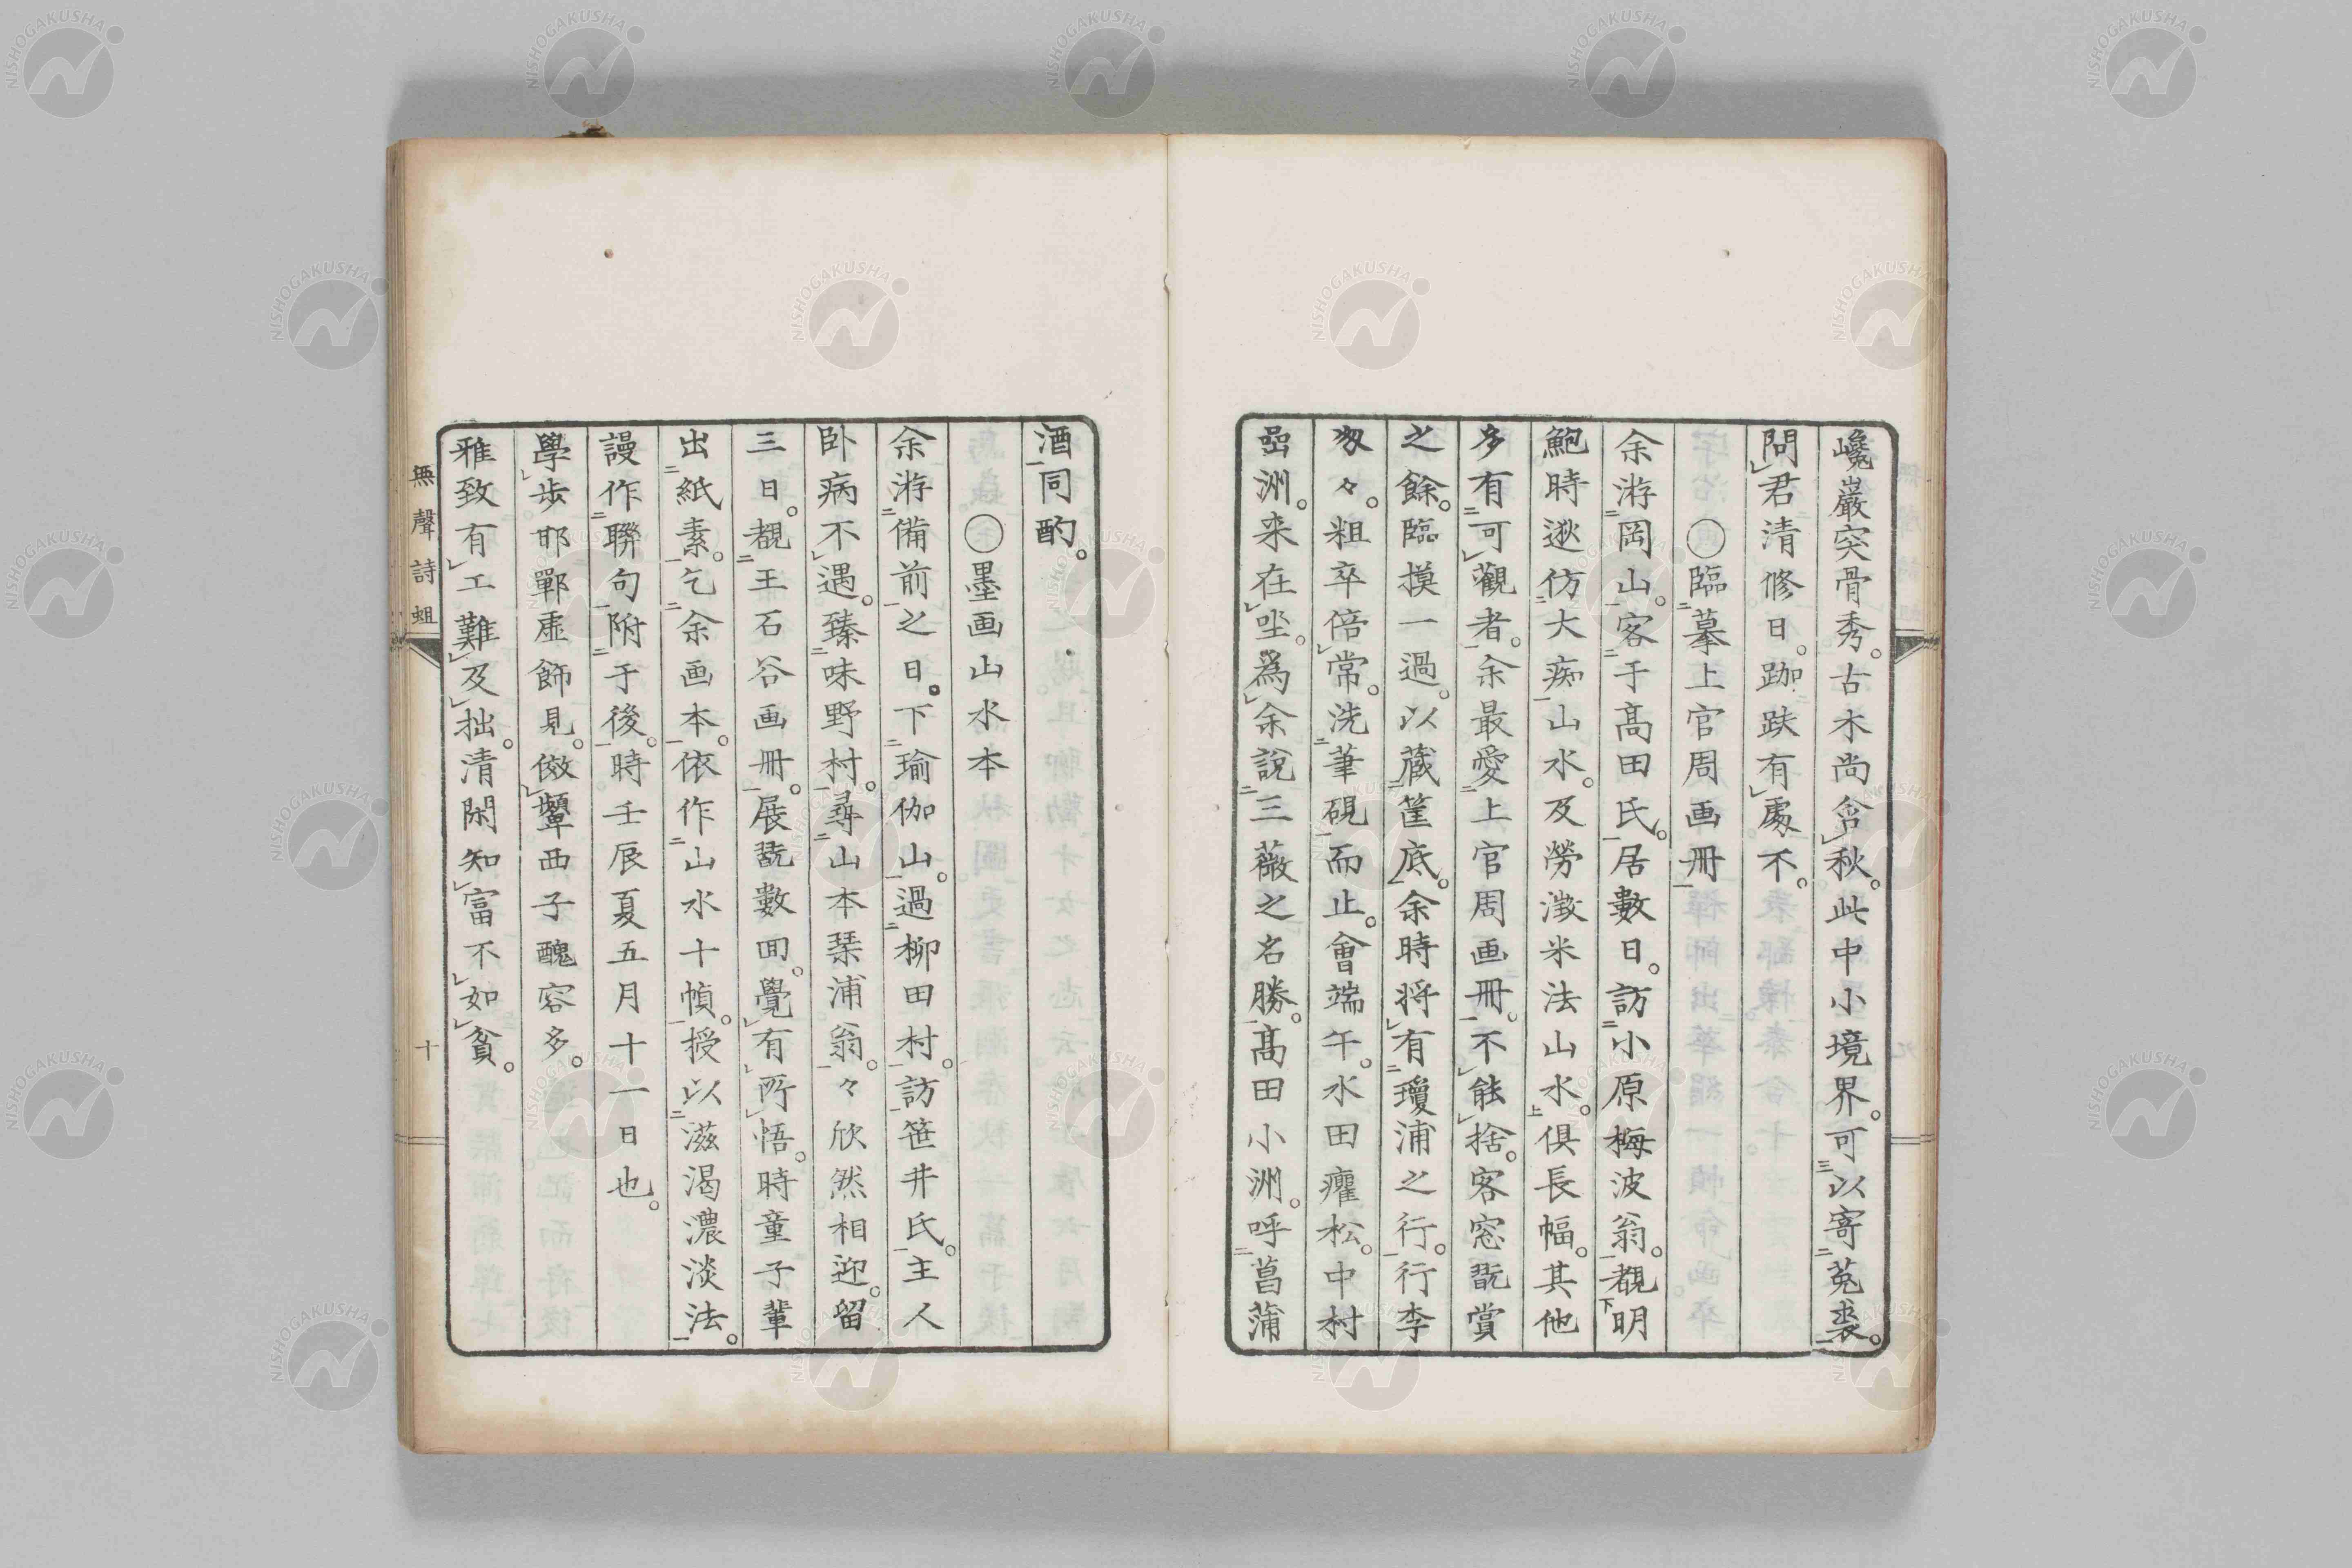 巉巖突骨秀。古木尚含秋。此中小境界。可以寄菟裘。
問君清修日。跏趺有處不。
○臨摹上官周画冊
余游岡山。客于髙田氏。居數日。訪小原梅波翁。覩明
鮑時遜仿大痴山水。及勞澂米法山水。俱長幅。其他
多有可觀者。余最愛上官周画冊。不能捨。客窓翫賞
之餘。臨摸一過。以蔵筐底。余時将有瓊浦之行。行李
匆々。粗卒倍常。洗筆硯而止。會端午。水田癯松。中村
嵒洲。来在坐。為余説三薇之名勝。髙田小洲。呼菖蒲
酒同酌。
○墨画山水本
余游備前之日。下瑜伽山。過柳田村。訪笹井氏。主人
卧病不遇。臻味野村。尋山本琹浦翁。々欣然相迎。留
三日。覩王石谷画冊。展翫數回。覺有所悟。時童子輩
出紙素。乞余画本。依作山水十幀。授以滋渴濃淡法。
謾作聯句附于後。時壬辰夏五月十一日也。
學歩邯鄲虛飾見。傚顰西子醜容多。
雅致有工難及拙。清閑知富不如貧。
無聲詩蛆
十
NISHOGAKUSHA